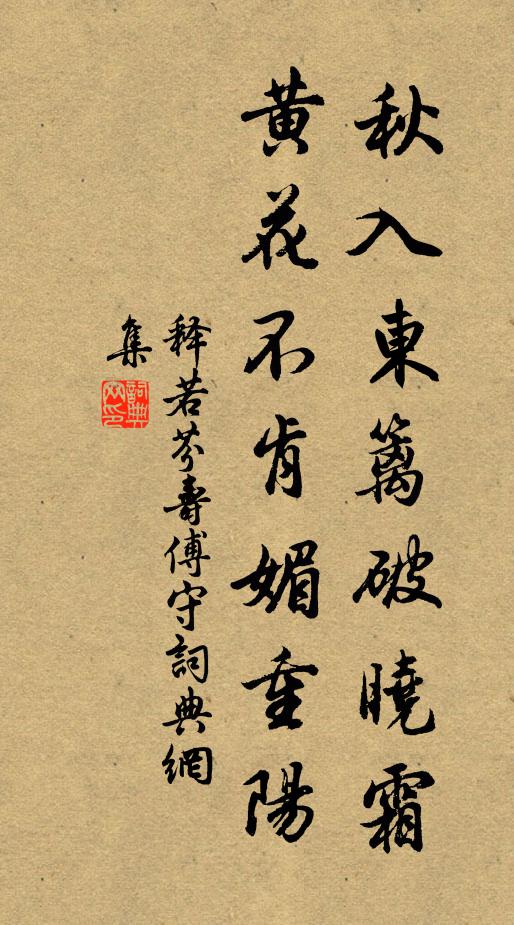 秋入東籬破曉霜
黃花不肯媚重陽
释若芬壽傅守詞典網
集
詞典網印